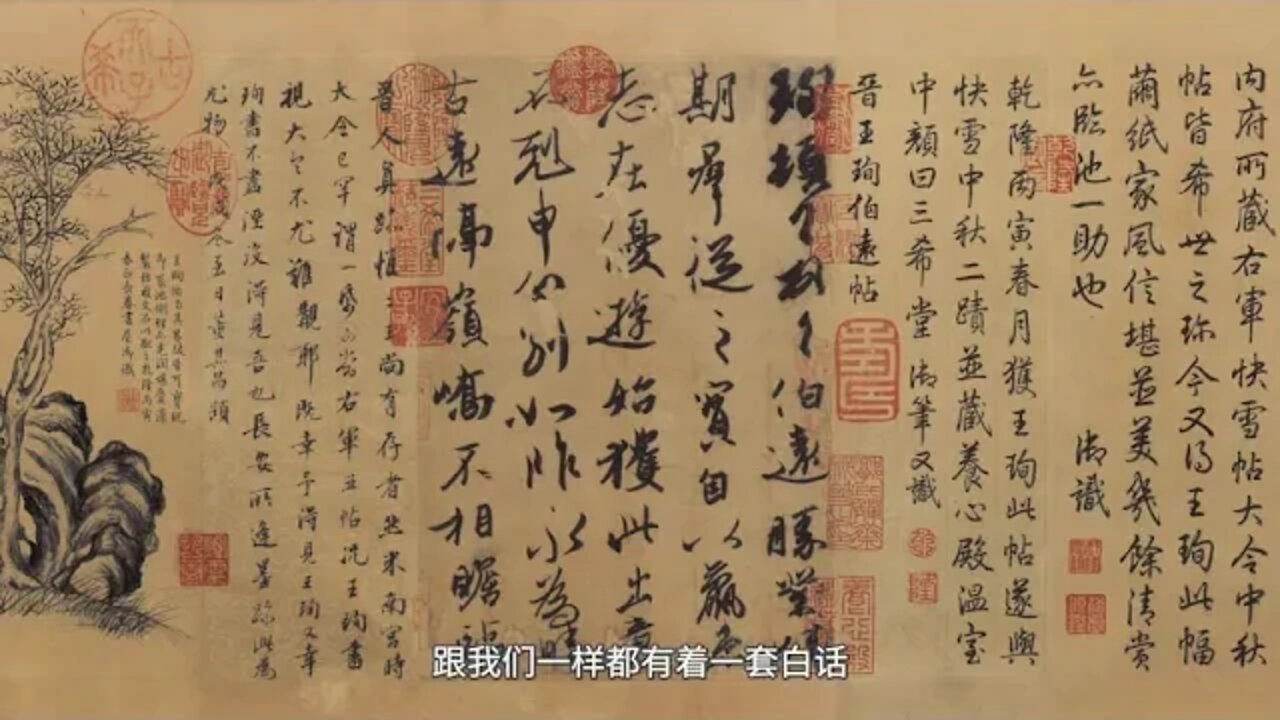 内府所藏右軍快雪帖大令中秋
帖皆希世之珍今又得王珣此幅
繭紙家風信堪並美幾餘清賞
亦臨池一助也 御識
乾隆丙寅春月獲王珣此帖遂與
快雪中秋二蹟並藏養心殿溫室
中顏曰三希堂 御筆又識
晉王珣伯遠帖
珣頓首頓首伯遠勝業情
期群從之寶自以羸患
志在優遊始獲此出意
不剋申分別如昨永為疇
古遠隔嶺嶠不相瞻臨
晉人真跡惟二王尚有存者然米南宮時
大令已罕謂一紙可當右軍五帖況王珣書
視大令不尤難覯耶既幸予得見王珣又幸
珣書不盡湮沒得見吾也長安所逢墨跡此為
尤物 戊戌冬至日董其昌題
跟我们一样都有着一套白话